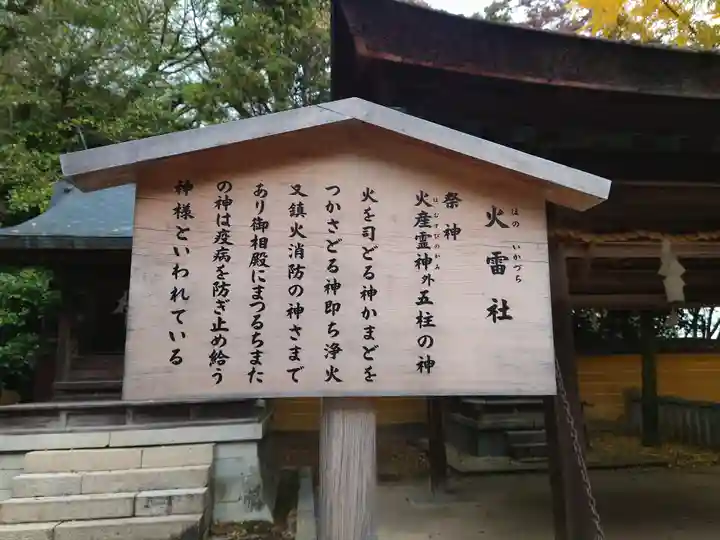 火雷社
ほの いかづち
祭神
火産霊神外五柱の神
ほむすびのかみ
火を司どる神かまどを
つかさどる神即ち浄火
又鎮火消防の神さまで
あり御相殿にまつるちまた
の神は疫病を防ぎ止め給う
神様といわれている